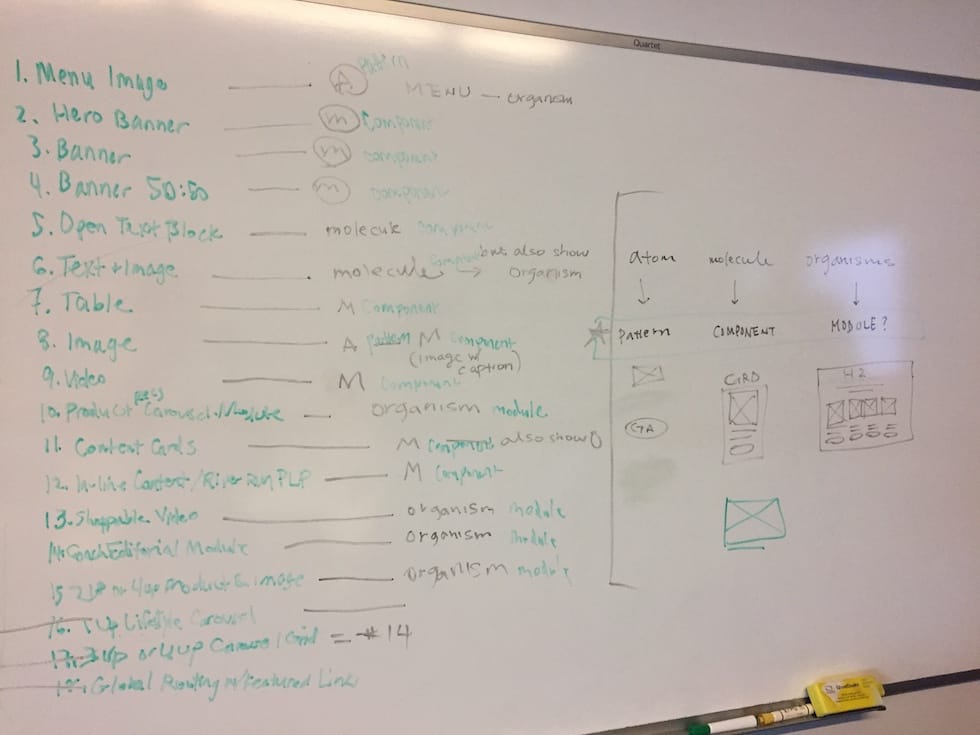 Quartet
1. Menu Image A pattern MENU - organism
2. Hero Banner m Component
3. Banner m component
4. Banner 50:50 m component
5. Open Text Block molecule Component
6. Text + Image molecule Component but also show → organism
7. Table M Component
8. Image A pattern M component
(image w caption)
9. Video M Component
10. Product Carousel / Module organism module
11. Content Cards M Component also show O
12. In-line Content / River Run PLP M Component
13. Shoppable Video organism module
14. Coach Editorial Module organism module
15 Product & image organism module
16. 1up Lifestyle Carousel
17. 3up or 4up Carousel Grid = #14
18. Global Routing w/ Featured Link
atom molecule organisms
Pattern COMPONENT MODULE?
CARD H2